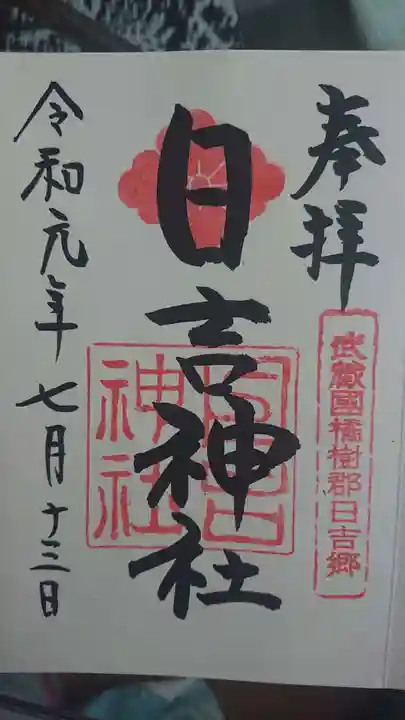 奉拝
武蔵國橘樹郡日吉郷
日吉神社
日吉神社
令和元年七月十三日